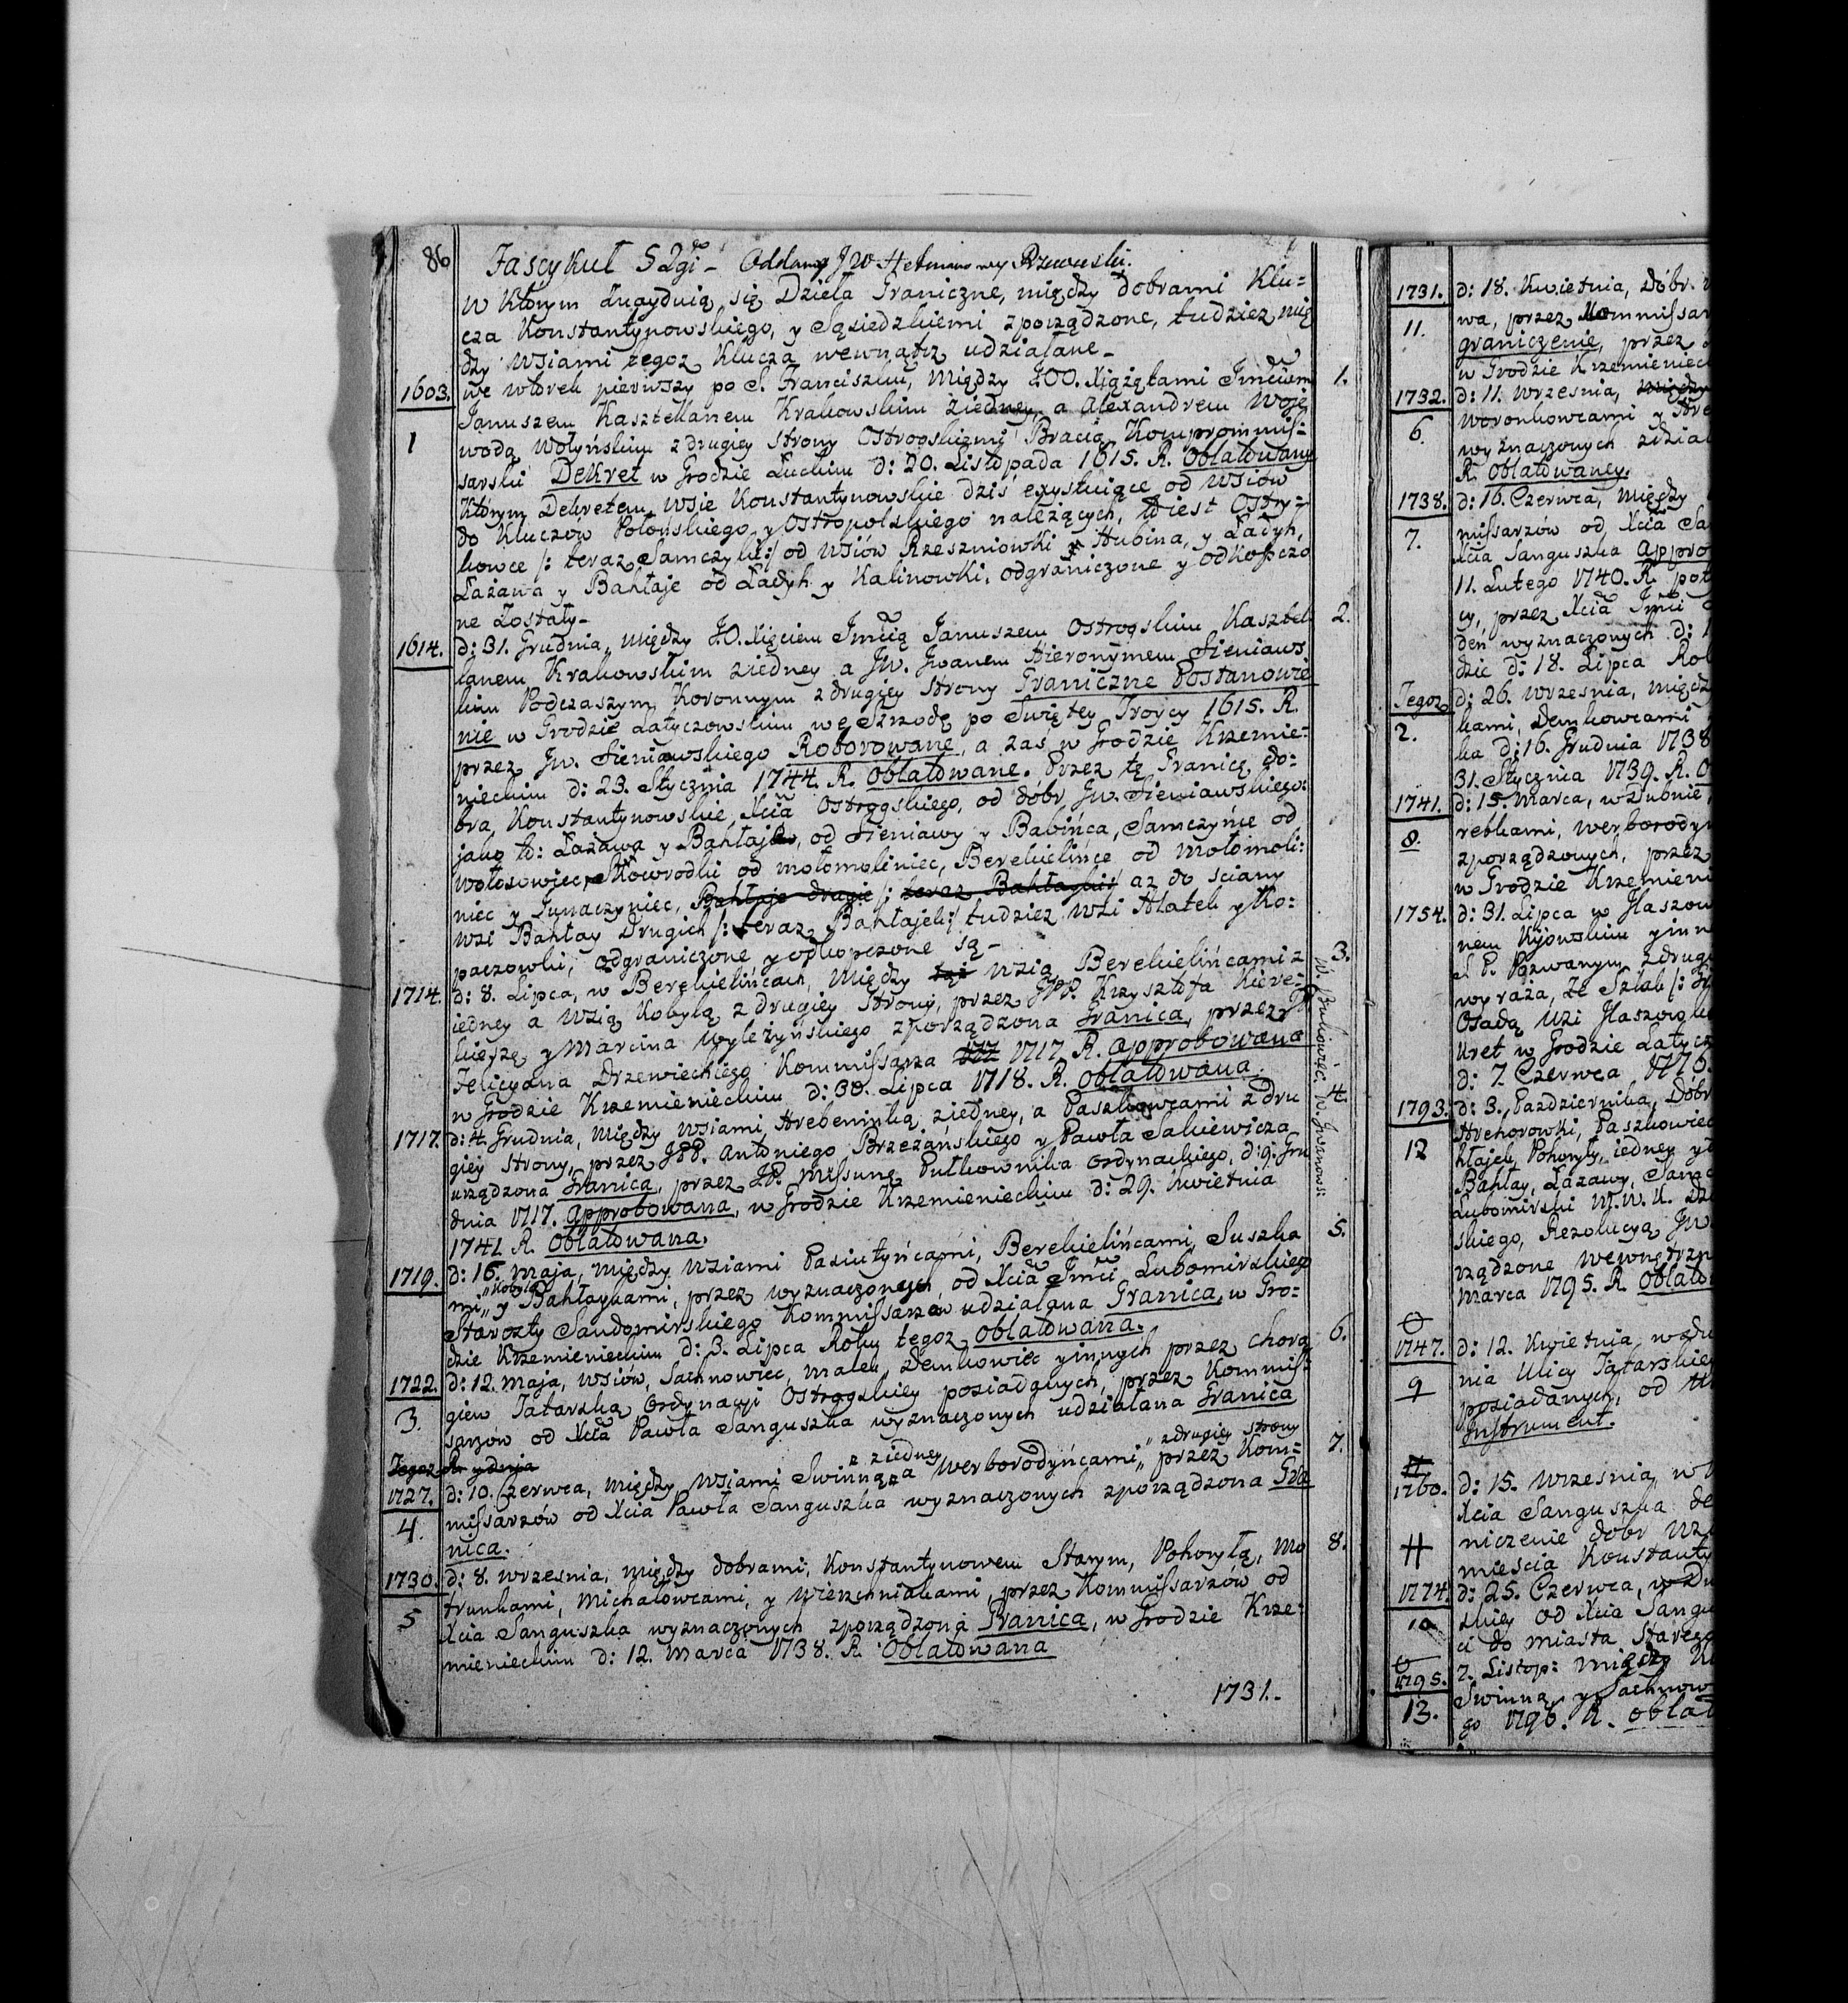 86
Fascykuł 52gi – Oddany JW Hetmanowy Rzewuski.
w którym znayduią się Dzieła Graniczne, między dobrami Klu-
cza Konstantynowskiego, y Sąsiedzkiemi zporządzone, tudziez mię
dzy wsiami tegoz Klucza wewnątrz udziałane –
1603. we wtorek pierwszy po S. Franciszku, między JOO. Xiążętami Imciam 1.
Januszem Kasztellanem Krakowskim ziedney a Alexandrem Woje
1 wodą Wołyńskim z drugiey strony Ostrogskiemi Bracią Kompromis-
sarski Dekret w Grodzie Łuckim d: 20. Listopada 1615. R. Oblatowany
którym Dekretem wsie Konstantynowskie dziś exystuiące od wsiów
do Kluczów Połonskiego, y Ostropolskiego należących, to iest Ostry-
kowce /: teraz Samczyki :/ od wsiów Rzeszniowki y Hubina, y Ładyh,
Łazawa y Bahłaje od Ładyh y Kalinowki, odgraniczone y odkopczo
ne zostały –
1614. d: 31. Grudnia, między JO. Xięciem Imcią Januszem Ostrogskim Kasztel 2.
lanem Krakowskim ziedney a Jw. Jwanem Hieronymem Sieniaws
kim Podczaszym Koronnym z drugiey strony Graniczne Postanowie
nie w Grodzie Latyczowskim we Szrzodę po Swiętey Troycy 1615. R.
przez Jw. Sieniawskiego Roborowane, a zaś w Grodzie Krzemie-
nieckim d: 23. Stycznia 1744. R. Oblatowane. Przez tę Granicę do-
bra Konstantynowskie Xcia Ostrogskiego, od dobr Jw. Sieniawskiego:
jako to: Łazawa y Bahłaje, od Sieniawy y Babińca, Samczyńce od
Wołosowiec, Skowrodki od mołomoliniec, Berekielińce od Mołomoli-
niec y Zunaczyniec, Bahłaje drugie /: teraz Bahłayki :/ az do sciany
wsi Bahłay Drugich /: teraz Bahłajek :/ tudziez wsi Hałek y Ko-
paczowki, odgraniczone y odkopczone są –
1714. d: 8. Lipca, w Berekielińcach, między wsią Berekielińcami z 3.
iedney a wsią Kobylą z drugiey strony, przez JPP. Krzysztofa Kiere-
kieszę y Marcina Wyleżyńskiego zporządzona Granica, przez JP
Felicyana Drzewieckiego Kommissarza 1717 R. Approbowana
w Grodzie Krzemienieckim d: 30. Lipca 1718. R. Oblatowana.
W. Butkowiec. W. Jwanowsi
1717. d: 4. Grudnia, między wsiami Hrebeninką ziedney, a Paszkowcami z dru 4.
giey strony, przez JPP. Antoniego Brzezańskiego y Pawła Sakiewicza
urządzona Granica, przez JP. Missunę Pułkownika Ordynackiego, d: 9. Gru
dnia 1717. Approbowana, w Grodzie Krzemienieckim d: 29. Kwietnia
1741 R. Oblatowana.
1719. d: 16. Maja, między wsiami Pasiutyńcami, Berekielińcami, Suszka 5.
mi „Kobyla„ y Bahłaykami, przez wyznaczonych od Xcia Imci Lubomirskiego
Starosty Sandomirskiego Kommissarzów udziałana Granica, w Gro-
dzie Krzemienieckim d: 3. Lipca Roku tegoz Oblatowana.
1722. d: 12. Maja, wsiów, Sachnowiec, Małek, Demkowiec y innych przez chorą 6.
3. giew Tatarską Ordynacyi Ostrogskiey posiadanych, przez Kommis-
sarzów od Xcia Pawła Sanguszka wyznaczonych udziałana Granica
Tegoz R. y dnia
1727. d: 10. Czerwca, między wsiami Swinną „ziedney a Werborodyńcami „zdrugiey strony przez Kom- 7.
4. missarzów od Xcia Pawła Sanguszka wyznaczonych zporządzona Gra
nica.
1730. d: 8. Wrzesnia, między dobrami, Konstantynowem Starym, Pohoryłą, Mo 8.
trunkami, Michałowcami, y Wierzchniakami, przez Kommissarzów od
5 Xcia Sanguszka wyznaczonych zporządzona Granica, w Grodzie Krze-
mienieckim d: 12. Marca 1738. R. Oblatowana
1731.–
1731. d: 18. Kwietnia, Dóbr
11. wa, przez Kommissar
graniczenie, przez
w Grodzie Krzemieniec
1732. d: 11. Wrzesnia, między
6. Woronkowcami y
wyznaczonych zdział
R. Oblatowaney.
1738. d: 16. Czerwca, między
7. missarzów od Xcia Sa
Xcia Sanguszka Appro
11. Lutego 1740. R.
cy, przez Xcia Imci
deń wyznaczonych d:
dzie d: 18. Lipca Ro
Tegoz d: 26. Wrzesnia, międz
2. kami, Demkowcami
ka d: 16. Grudnia 1738
31. Stycznia 1739. R. O
1741. d: 15. Marca, w Dubnie,
8. rebkami, Werborody
zporządzonych, przez
w Grodzie Krzemieni
1754. d: 31. Lipca w Hłaszow
nem Kijowskim y inn
a P. Pozwanym z drug
wyraża, ze Szlak /:
Osadą wsi Hłaszow
kret w Grodzie Latycz
d: 7. Czerwca 1776.
1793. d: 3. Pazdziernika, Dóbr
12 Hrehorowki, Paszkowiec
hłajek, Pohoryły, iedney y
Bahłay, Łazawy, Samc
Lubomirski W. W. K.
skiego, Rezolucyą Jw.
rządzone wewnętrzn
Marca 1795. R. Oblatow
1747. d: 12. Kwietnia, w du
9 nia Ulicy Tatarskiey
posiadanych, od
Jnstrument.
1760. d: 15. Wrzesnia, w
Xcia Sanguszka de
H niczenie dobr
miescia Konstanty
1774. d: 25. Czerwca, w Du
10 skiey od Xcia Sangu
ci do miasta Starego
1795. 2. Listop: między
13. Swinną, y Sachnow
go 1796. R. Oblat